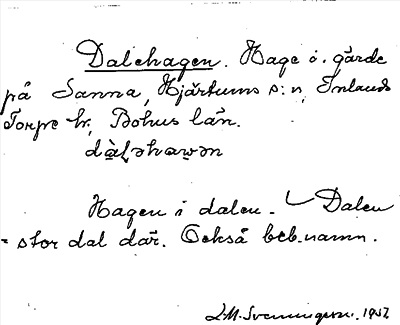 Dalehagen. Hage ö. gärde
på Sanna, Hjärtums s:n, Inlands
Torpe hr, Bohus län.
Hagen i dalen. Dalen
= stor dal där. Också beb.namn.
1952